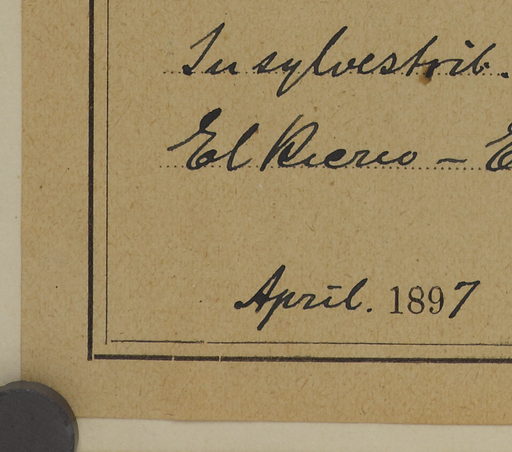 In sylvestrib.
El Rierio – E
April. 1897